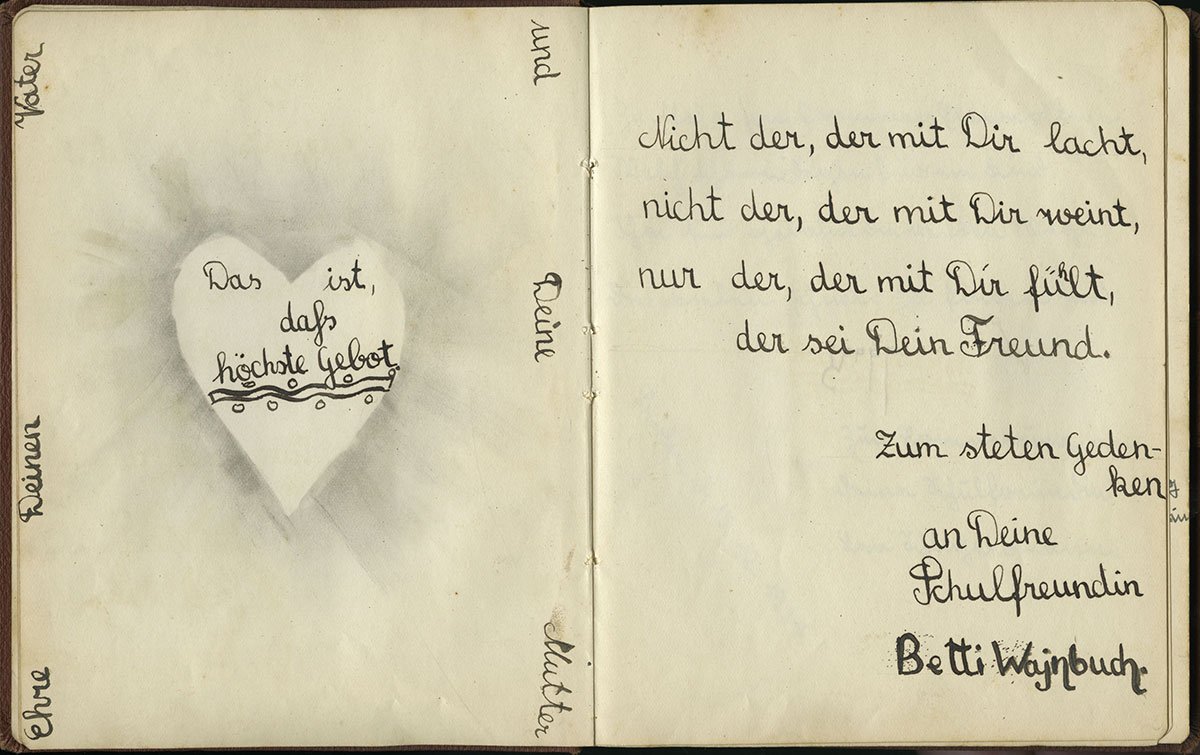 Ehre Deinen Vater
und Deine Mutter
Das ist,
daſs
höchste Gebot.
Nicht der, der mit Dir lacht,
nicht der, der mit Dir weint,
nur der, der mit Dir fühlt,
der sei Dein Freund.
Zum steten Geden-
ken
an Deine
Schulfreundin
Betti Wajnbuch.